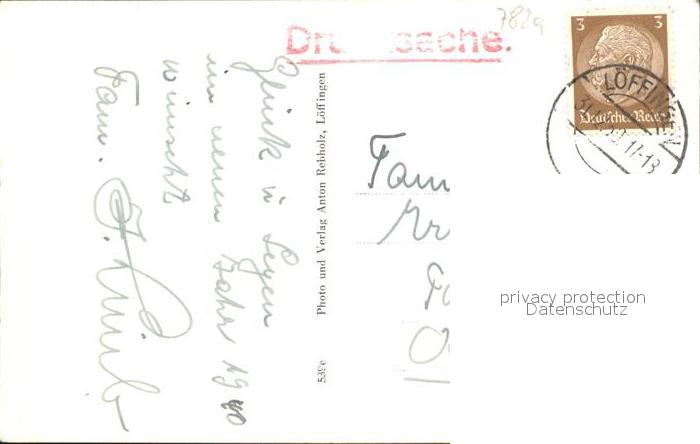 782a
Drucksache.
3 3
Deutsches Reich
LÖFFINGEN
17-18
Glück u Segen
im neuen Jahr 1940
wünscht
Fam.
Photo und Verlag Anton Rebholz, Löffingen
539c
Fam
privacy protection
Datenschutz